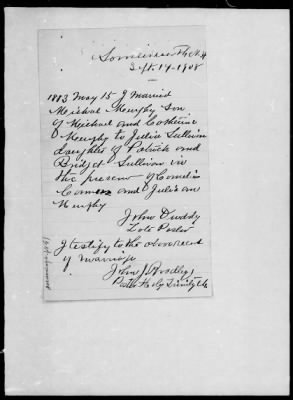 Somersworth N.H.
Sept. 19-1908
1883 May 15 I married
Michael Murphy son
of Michael and Catherine
Murphy to Julia Sullivan
daughter of Patrick and
Bridget Sullivan in
the presence of Cornelius
and Julia Ann
Murphy
John Duddy
Late Pastor
I testify to the above record
of marriage
John J Bradley
Pastor Holy Trinity Ch.